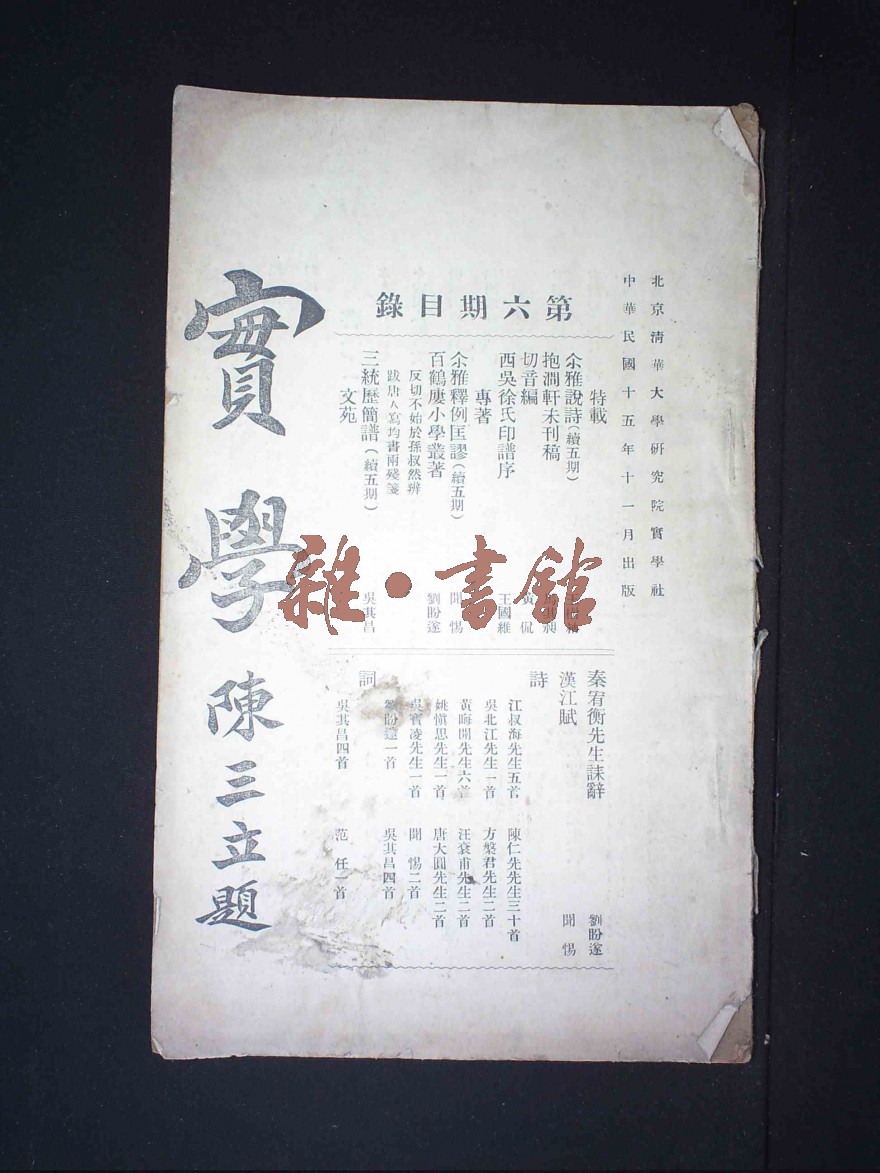 北京清華大學硏究院實學社
中華民國十五年十一月出版
第六期目錄
特載
尒雅說詩(續五期)
抱潤軒未刊稿 其昶
切音編 黃侃
西吳徐氏印譜序 王國維
專著
尒雅釋例匡謬(續五期) 聞惕
百鶴廔小學叢著 劉盼遂
反切不始於孫叔然辨
跋唐人寫均書兩殘箋
三統歷簡譜(續五期) 吳其昌
文苑
秦宥衡先生誄辭 劉盼遂
漢江賦 聞惕
詩
江叔海先生五首 陳仁先先生三十首
吳北江先生一首 方槃君先生二首
黃晦聞先生六首 汪袞甫先生二首
姚愼思先生一首 唐大圓先生二首
吳賓凌先生一首 聞惕二首
劉盼遂一首 吳其昌四首
詞
吳其昌四首 范任一首
實學
陳三立題
雜·書館